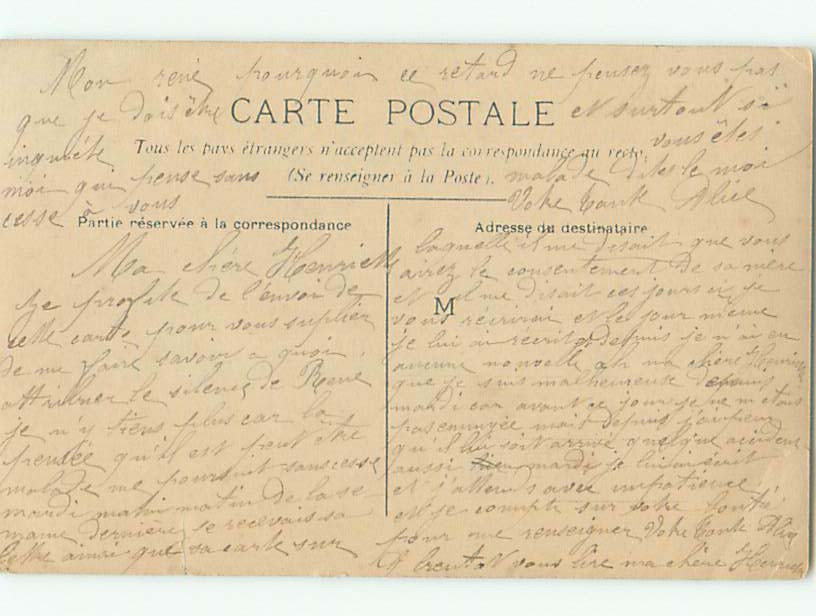 Mon rené pourquoi ce retard ne pensez vous pas
que je dois être
CARTE POSTALE
et surtout si
inquiète
vous êtes
Tous les pays étrangers n'acceptent pas la correspondance au recto.
malade dites le moi
moi qui pense sans
(Se renseigner à la Poste).
cesse à vous
Votre tante Alice
Partie réservée à la correspondance
Ma chère Henriette
Je profite de l'envoi de
cette carte pour vous suplier
de me faire savoir a quoi
attribuer le silence de René
je n'y tiens plus car la
pensée qu'il est peut être
malade me poursuit sans cesse
mardi matin matin de la se-
maine dernière je recevais sa
lettre ainsi que sa carte sur
Adresse du destinataire
M
laquelle il me disait que vous
aviez le consentement de sa mère
et il me disait ces jours ci je
vous récrirai et le jour même
je lui ai récrit et depuis je n'ai eu
aucune nouvelle ah ma chère Henriette
que je suis malheureuse depuis
mardi car avant ce jour je ne m'étais
pas ennuyée mais depuis j'ai peur
qu'il lui soit arrivé quelque accident
aussi mardi je lui ai écrit
et j'attends avec impatience
et je compte sur votre bonté
pour me renseigner Votre tante Alice
bientôt vous lire ma chère Henriette